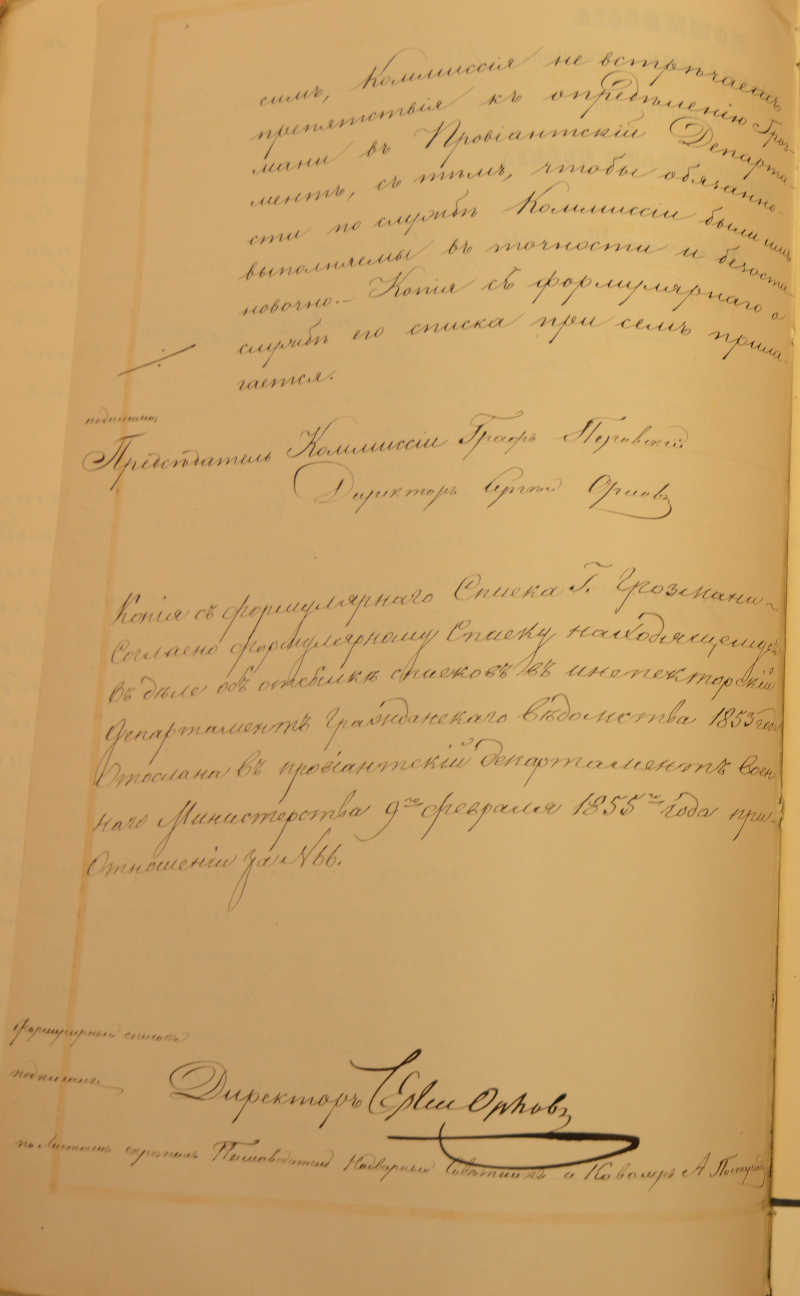 симъ, Коммиссія не встрѣчаетъ
препятствія къ опредѣленію Гроз-
мани въ Провіантскій Департа-
ментъ, съ тѣмъ, чтобы обязанно-
сти по службѣ Коммиссіи были имъ
выполняемы въ точности и безоста-
новочно. – Копія съ формулярнаго о
службѣ его списка при семъ прила-
гается.
подписали,
Предсѣдатель Коммиссіи Графъ Перовскій
Директоръ Сергѣй Орловъ
Копія съ формулярнаго Списка Г. Грозмани
Согласно формулярному Списку находящемуся
въ дѣле объ отсылкѣ списковъ въ инспекторскій
департаментъ Гражданскаго вѣдомства 1853 года
Отослана въ провіантскій департаментъ Воен-
наго Министерства 9го февраля 1855го года при
Отношеніи за N 66.
формулярный списокъ
подписалъ
Директоръ Орловъ
по листамъ скрѣпилъ Надворный Совѣтникъ и Кавалеръ А